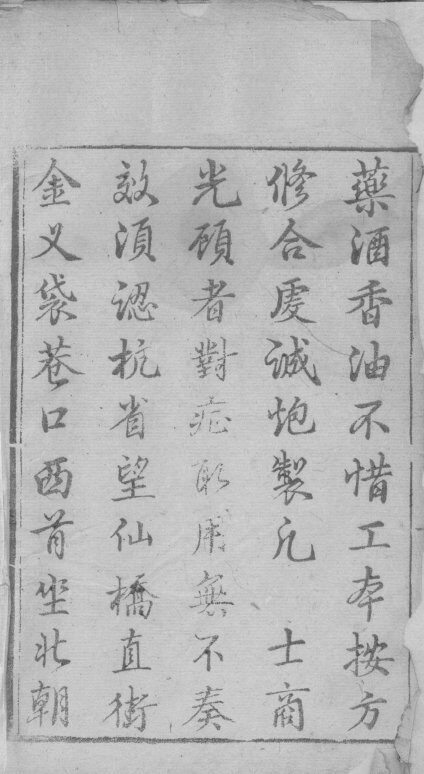 藥酒香油不惜工本按方
修合虔誠炮製凡 士商
光顧者對症取用無不奏
效須認杭省望仙橋直街
金义袋巷口西首坐北朝